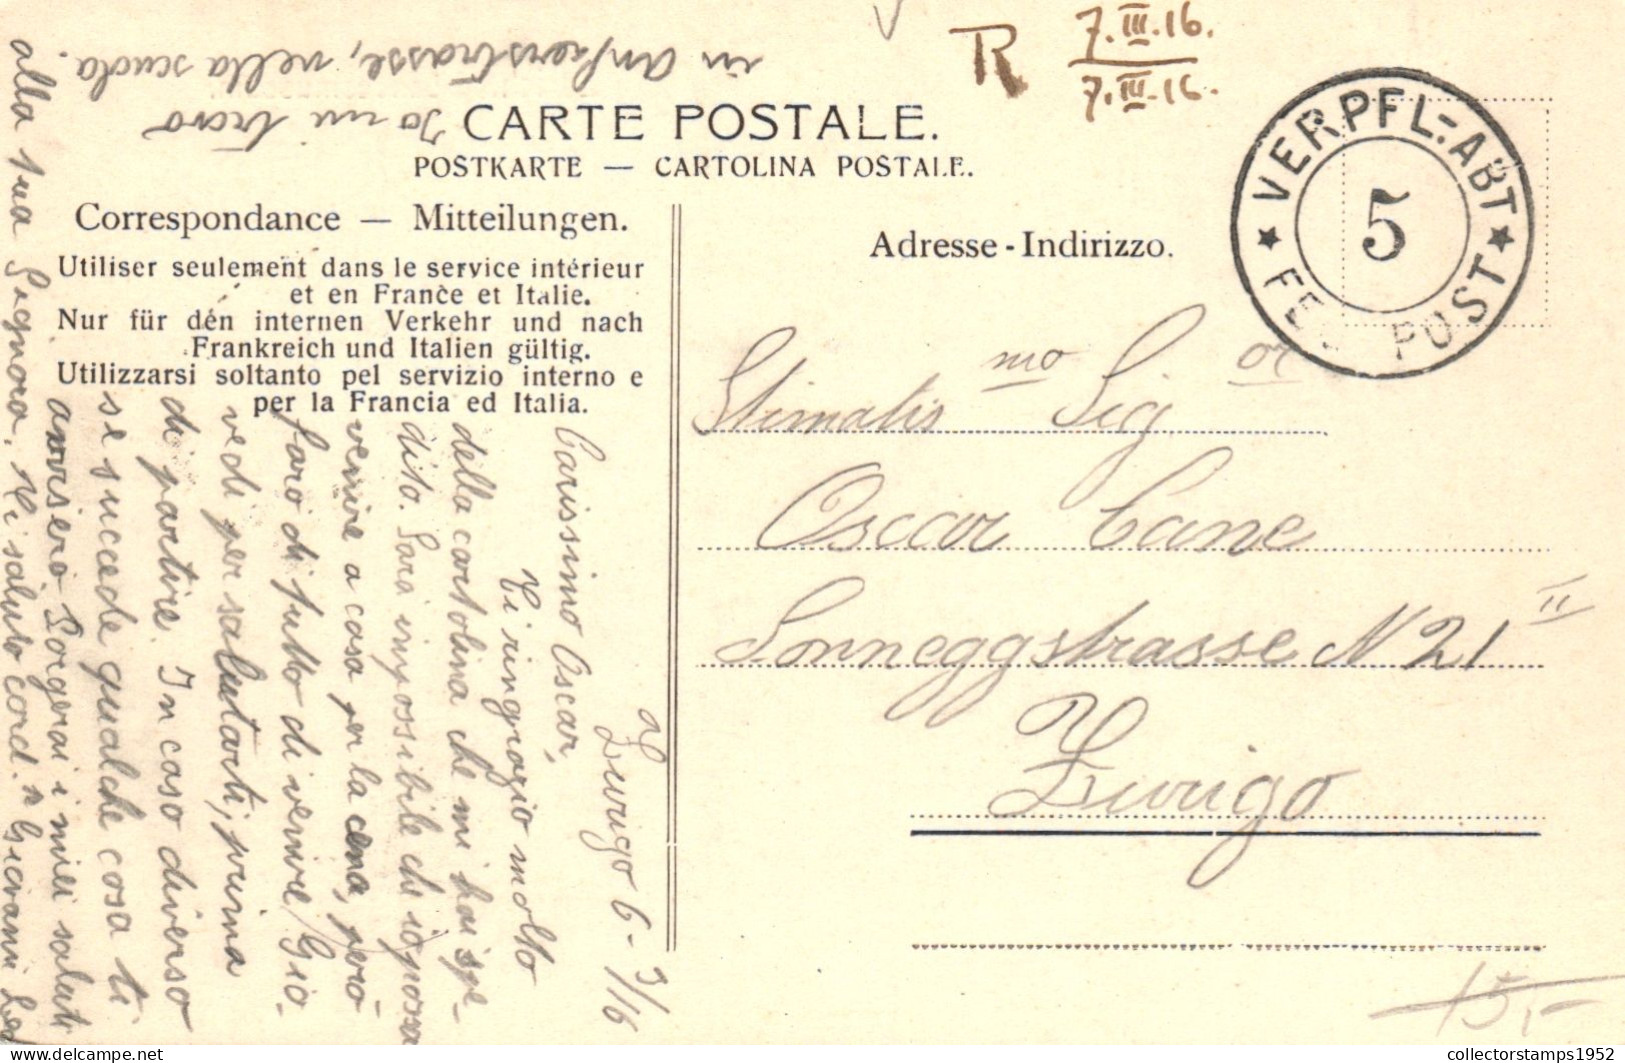 in Ankerstrasse, nella scuola.
Io mi trovo
R
7.III.16.
7.III.16.
CARTE POSTALE.
POSTKARTE — CARTOLINA POSTALE.
VERPFL:-ABT
5
FELDPOST
Correspondance — Mitteilungen.
Utiliser seulement dans le service intérieur
et en France et Italie.
Nur für den internen Verkehr und nach
Frankreich und Italien gültig.
Utilizzarsi soltanto pel servizio interno e
per la Francia ed Italia.
Adresse - Indirizzo.
Stimatismo Sigor
Oscar Cane
Sonneggstrasse N 21 II
Zurigo
Zurigo 6-3/16
Carissimo Oscar,
Ti ringrazio molto
della cartolina che mi hai spe-
dito. Sara impossibile ch io possa
venire a casa per la cena, però
faro di tutto di venire Gio-
vedi per salutarti, prima
di partire. In caso diverso
se succede qualche cosa ti
avviserò. Porgerai i miei saluti
alla tua Signora. Ti saluto cord. Giovanni
15,-
collectorstamps1952